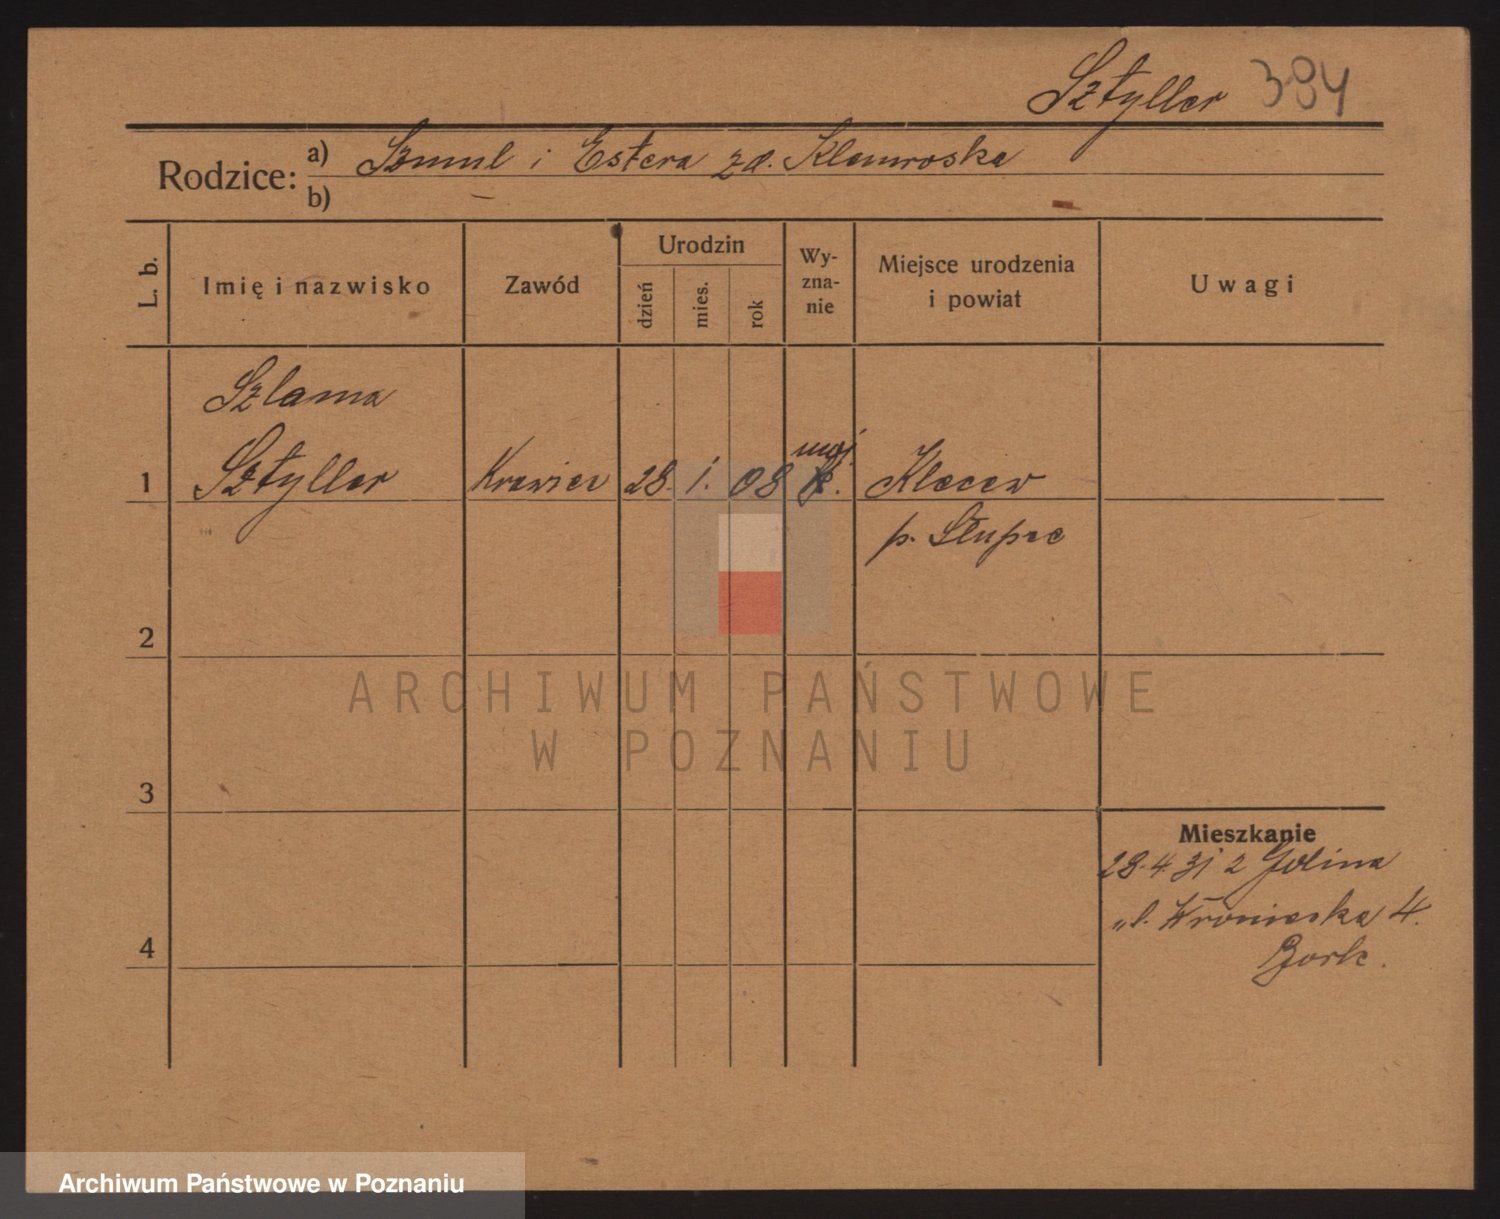 Sztyller 394
Rodzice: a) Szmul i Estera zd. Klemroska
b) –
L. b. Imię i nazwisko Zawód Urodzin dzień mies. rok Wy-zna-nie Miejsce urodzenia i powiat Uwagi
Szlama
mojż.
1 Sztyller Krawiec 28. 1. 08 Kleczew
p. Słupce
2
ARCHIWUM PAŃSTWOWE
W POZNANIU
3
Mieszkanie
28.4.31 z Golina
ul. Wroniecka 4.
4
Archiwum Państwowe w Poznaniu